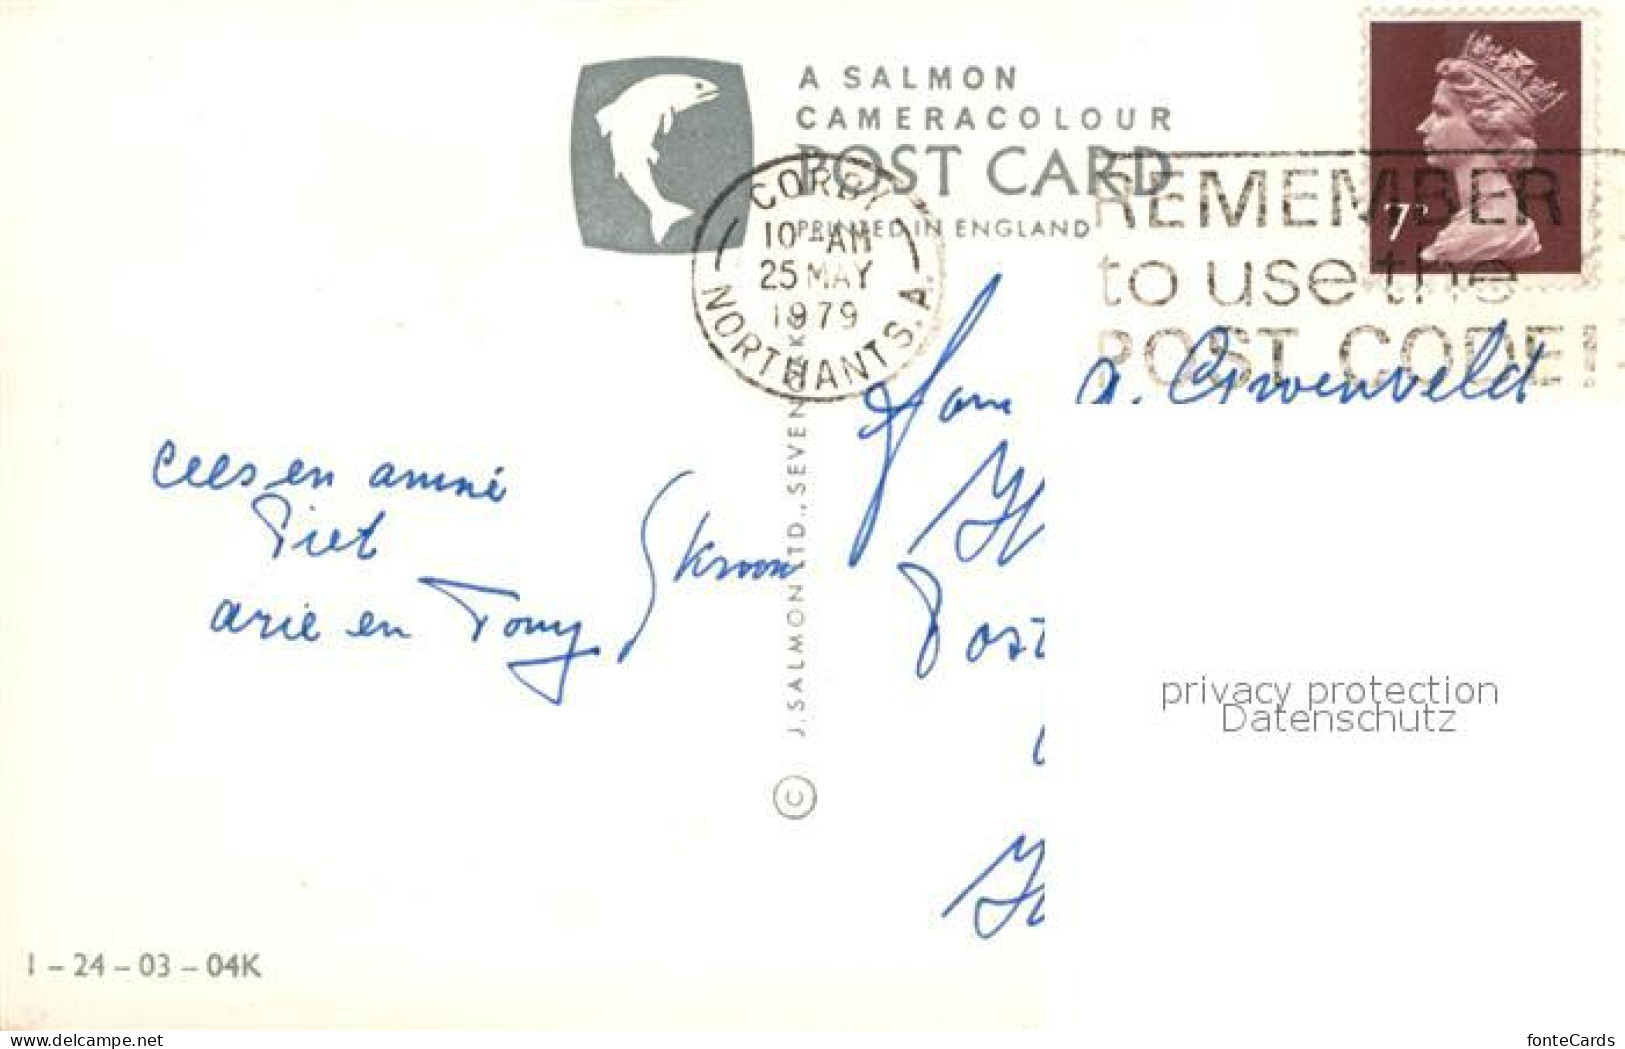 A SALMON
CAMERACOLOUR
POST CARD
PRINTED IN ENGLAND
CORBY
10-AM
25 MAY
1979
NORTHANTS. A.
REMEMBER
to use the
POST CODE!
7P
Fam
Cees en
Piet
arie en Tony
Kroon
Post
J. SALMON LTD., SEVENOAKS
©
1 – 24 – 03 – 04K
privacy protection
Datenschutz
www.delcampe.net
fonteCards